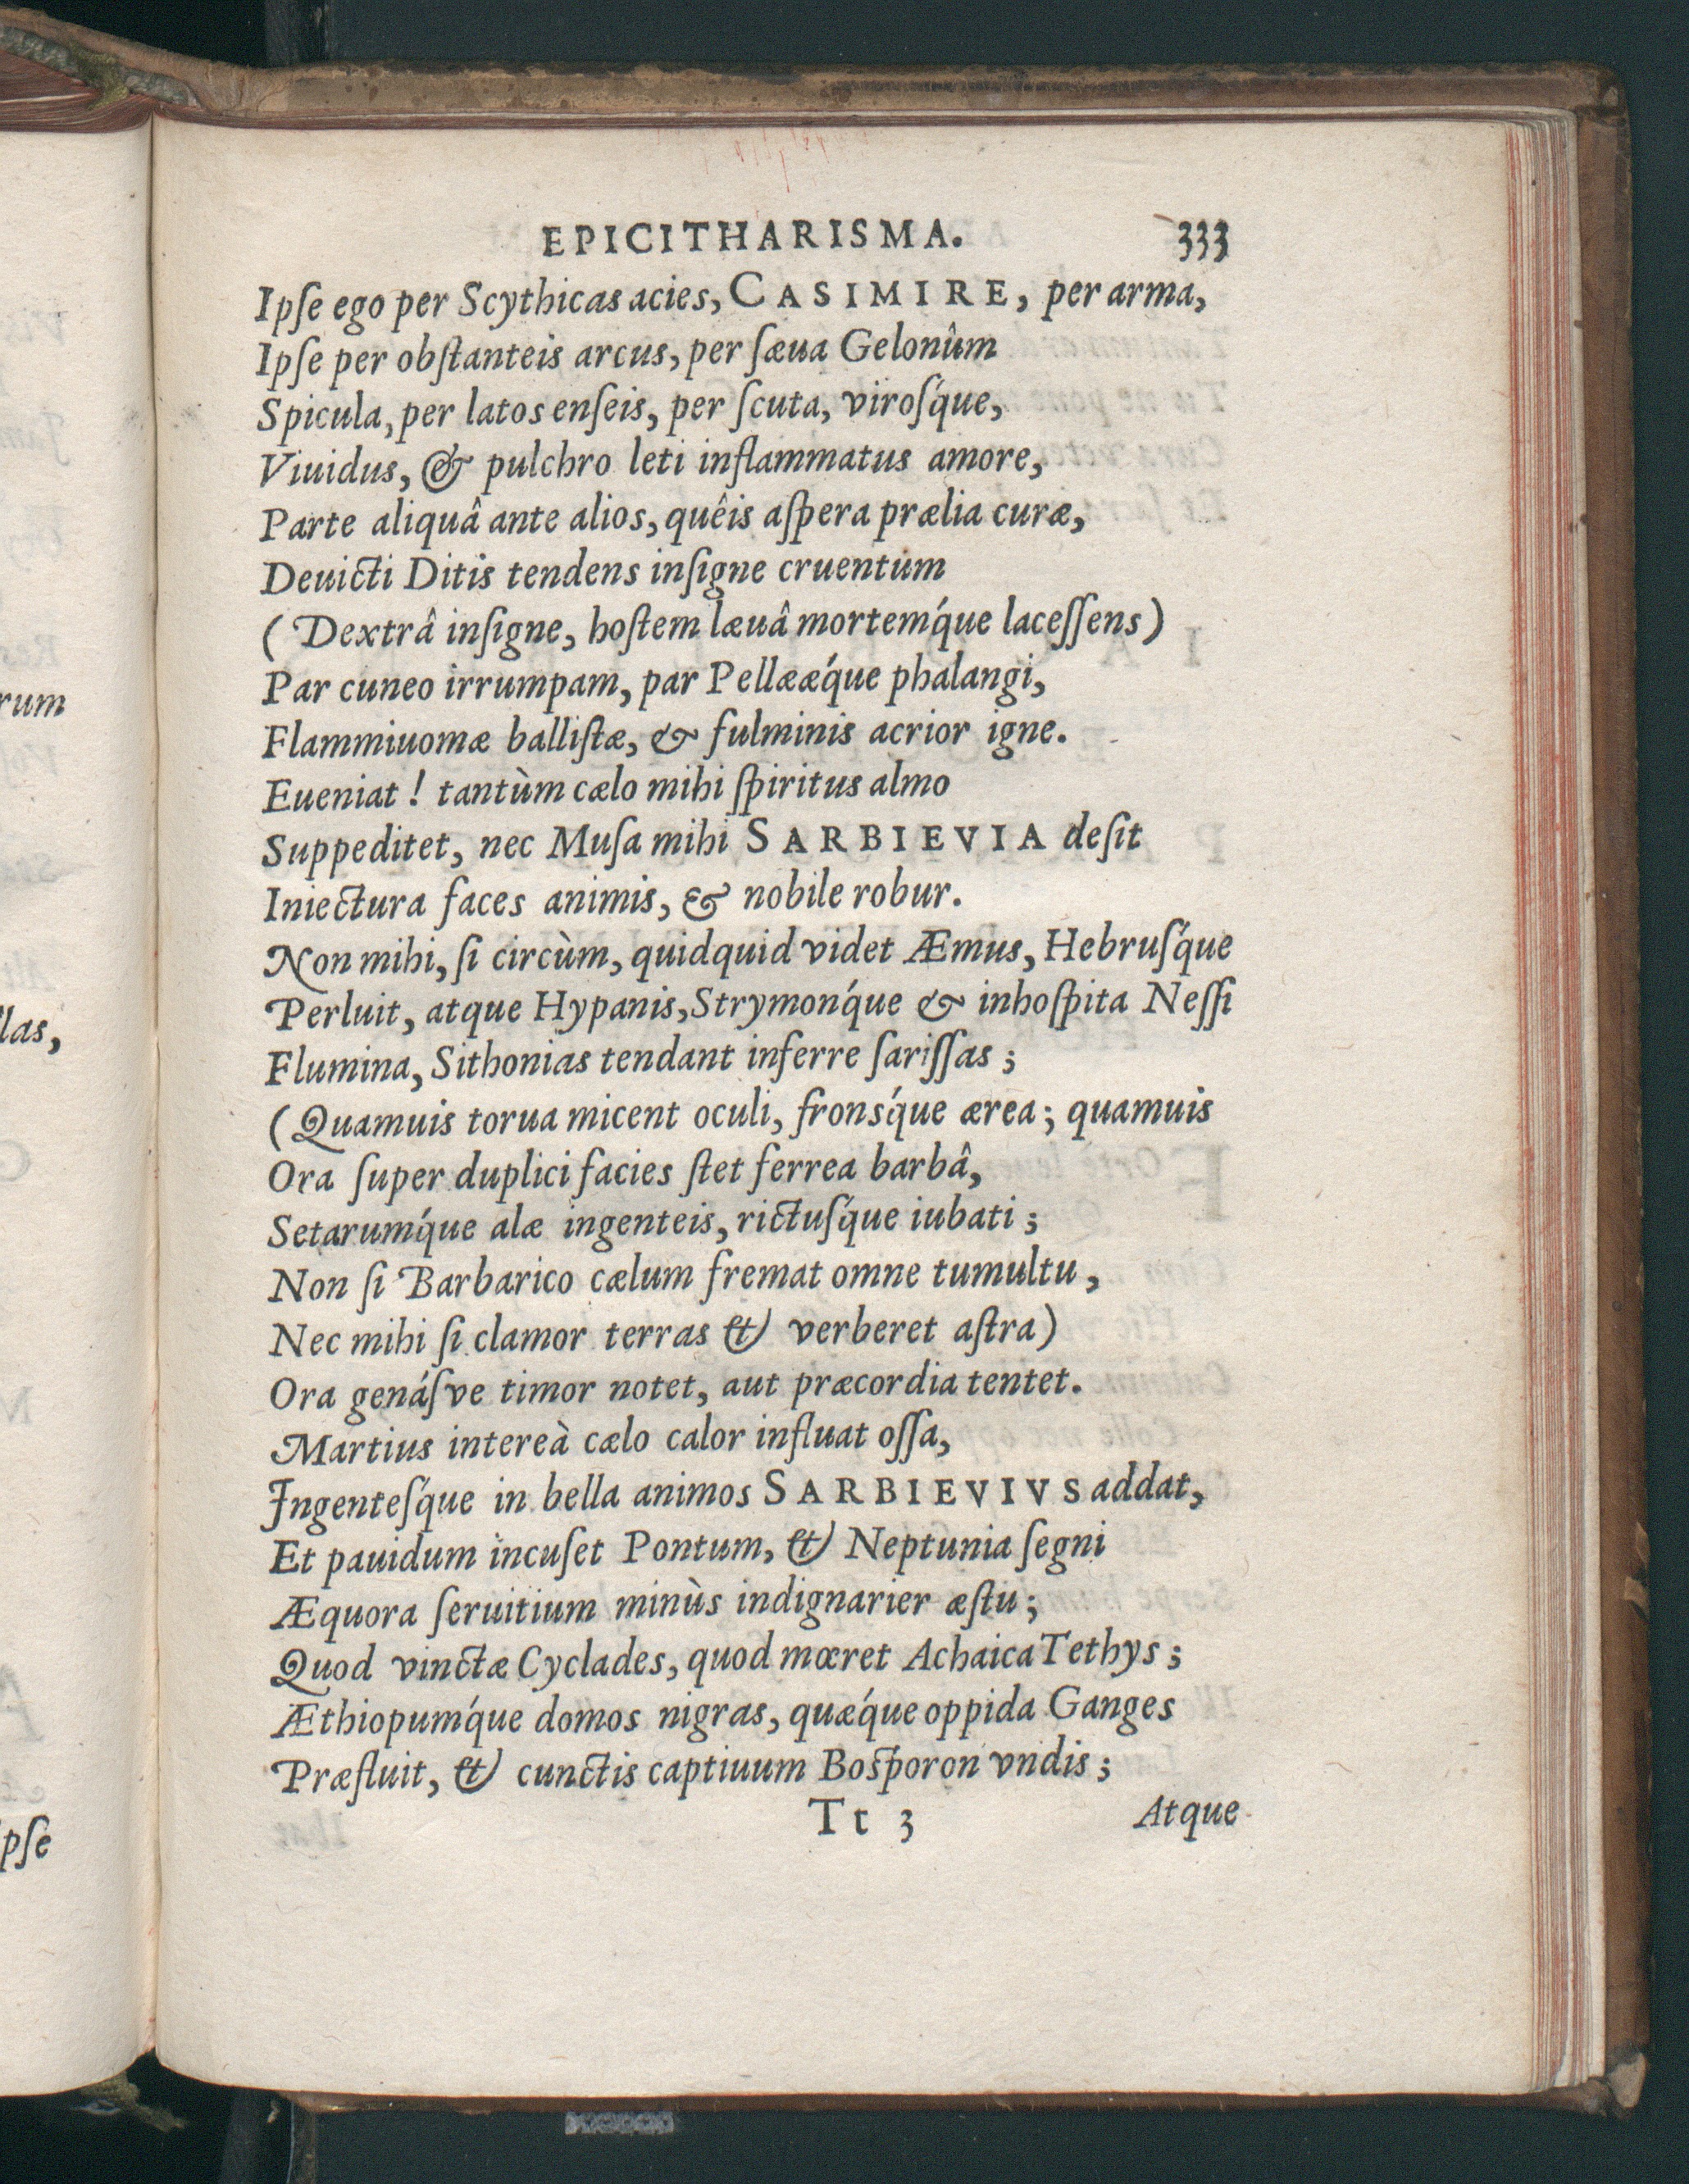 EPICITHARISMA. 333
Ipſe ego per Scythicas acies, CASIMIRE, per arma,
Ipſe per obſtanteis arcus, per ſæua Gelonûm
Spicula, per latos enſeis, per ſcuta, viroſq́ue,
Viuidus, & pulchro leti inflammatus amore,
Parte aliquâ ante alios, quêis aſpera prælia curæ,
Deuicti Ditis tendens inſigne cruentum
(Dextrâ inſigne, hoſtem læuâ mortemq́ue laceſſens)
Par cuneo irrumpam, par Pellææq́ue phalangi,
Flammiuomæ balliſtæ, & fulminis acrior igne.
Eueniat! tantùm cælo mihi ſpiritus almo
Suppeditet, nec Muſa mihi SARBIEVIA deſit
Iniectura faces animis, & nobile robur.
Non mihi, ſi circùm, quidquid videt Æmus, Hebruſq́ue
Perluit, atque Hypanis, Strymonq́ue & inhoſpita Neſſi
Flumina, Sithonias tendant inferre ſariſſas;
(Quamuis torua micent oculi, fronsq́ue ærea; quamuis
Ora ſuper duplici facies ſtet ferrea barbâ,
Setarumq́ue alæ ingenteis, rictuſq́ue iubati;
Non ſi Barbarico cælum fremat omne tumultu,
Nec mihi ſi clamor terras & verberet aſtra)
Ora genáſve timor notet, aut præcordia tentet.
Martius intereà cælo calor influat oſſa,
Ingenteſq́ue in bella animos SARBIEVIVS addat,
Et pauidum incuſet Pontum, & Neptunia ſegni
Æquora ſeruitium minùs indignarier æſtu;
Quod vinctæ Cyclades, quod mœret Achaica Tethys;
Æthiopumq́ue domos nigras, quæq́ue oppida Ganges
Præfluit, & cunctis captiuum Boſporon vndis;
Tt 3 Atque
rum
las,
pſe